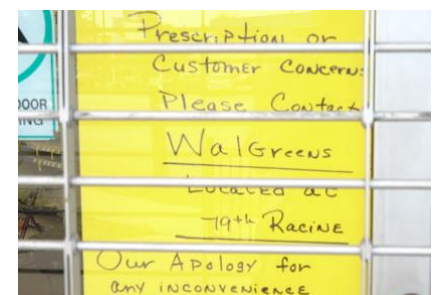 DOOR
ING
Prescription or
Customer Concerns
Please Contact
WalGreens
Located at
79th Racine
Our Apology for
any inconvenience